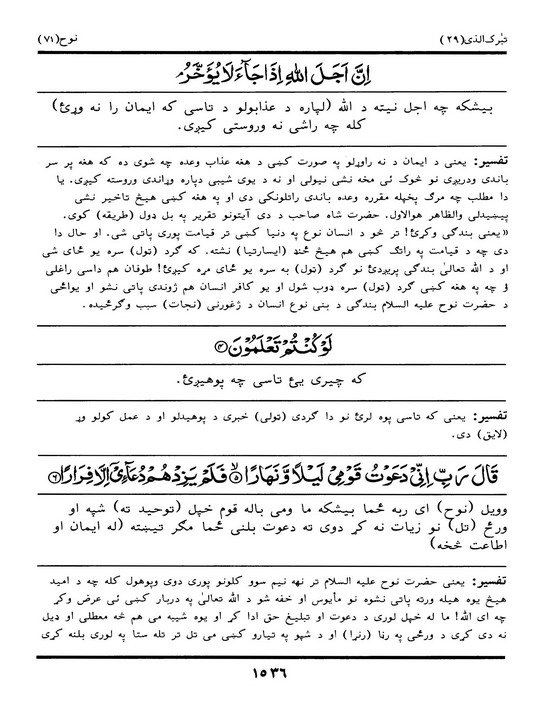 تبٰرک الذی (۲۹)
نوح (۷۱)
اِنَّ اَجَلَ اللّٰهِ اِذَا جَآءَ لَا يُؤَخَّرُ
بیشکه چه اجل نیته د الله (لپاره د عذابولو د تاسی که ایمان را نه وړئ)
کله چه راشی نه وروستی کیږی.
تفسیر: یعنی د ایمان د نه راوړلو په صورت کښی د هغه عذاب وعده چه شوی ده که هغه پر سر
باندی ودریږی نو څوک ئی مخه نشی نیولی او نه د یوی شیبی دپاره وړاندی وروسته کیږی. یا
دا مطلب چه مرګ پخپله مقرره وعده باندی راتلونکی دی او په هغه کښی هیڅ تاخیر نشی
پیښیدلی والظاهر هوالاول. حضرت شاه صاحب د دی آیتونو تقریر په بل دول (طریقه) کوی.
«یعنی بندگی وکړئ! تر څو د انسان نوع په دنیا کښی تر قیامت پوری پاتی شی. او حال دا
دی چه د قیامت په راتګ کښی هم هیڅ ځنډ (ایسارتیا) نشته. که گرد (ټول) سره یو ځای شی
او د الله تعالیٰ بندگی پریږدئ نو گرد (ټول) به سره یو ځای مړه کیږئ! طوفان هم داسی راغلی
ؤ چه په هغه کښی گرد (ټول) سره ډوب شول او یو کافر انسان هم ژوندی پاتی نشو او یواځی
د حضرت نوح علیه السلام بندگی د بنی نوع انسان د ژغورنی (نجات) سبب وگرځیده.
لَوْ كُنْتُمْ تَعْلَمُوْنَ ﴿۴﴾
که چیری یئ تاسی چه پوهیږئ.
تفسیر: یعنی که تاسی پوه لرئ نو دا گردی (ټولی) خبری د پوهیدلو او د عمل کولو وړ
(لایق) دی.
قَالَ رَبِّ اِنِّیْ دَعَوْتُ قَوْمِیْ لَيْلًا وَّنَهَارًا ﴿۵﴾ فَلَمْ يَزِدْهُمْ دُعَآءِیْۤ اِلَّا فِرَارًا ﴿۶﴾
وویل (نوح) ای ربه ځما بیشکه ما ومی باله قوم خپل (توحید ته) شپه او
ورځ (تل) نو زیات نه کړ دوی ته دعوت بلنی ځما مگر تیښته (له ایمان او
اطاعت څخه)
تفسیر: یعنی حضرت نوح علیه السلام تر نهه نیم سوو کلونو پوری دوی وپوهول کله چه د امید
هیڅ یوه هیله ورته پاتی نشوه نو مأیوس او خفه شو د الله تعالیٰ په دربار کښی ئی عرض وکړ
چه ای الله! ما له خپل لوری د دعوت او تبلیغ حق ادا کړ او یوه شیبه می هم څه معطلی او ډیل
نه دی کړی د ورځی په رڼا (رنړا) او د شپو په تیارو کښی می تل تر تله ستا په لوری بلنه کړی
۱۵۳۶